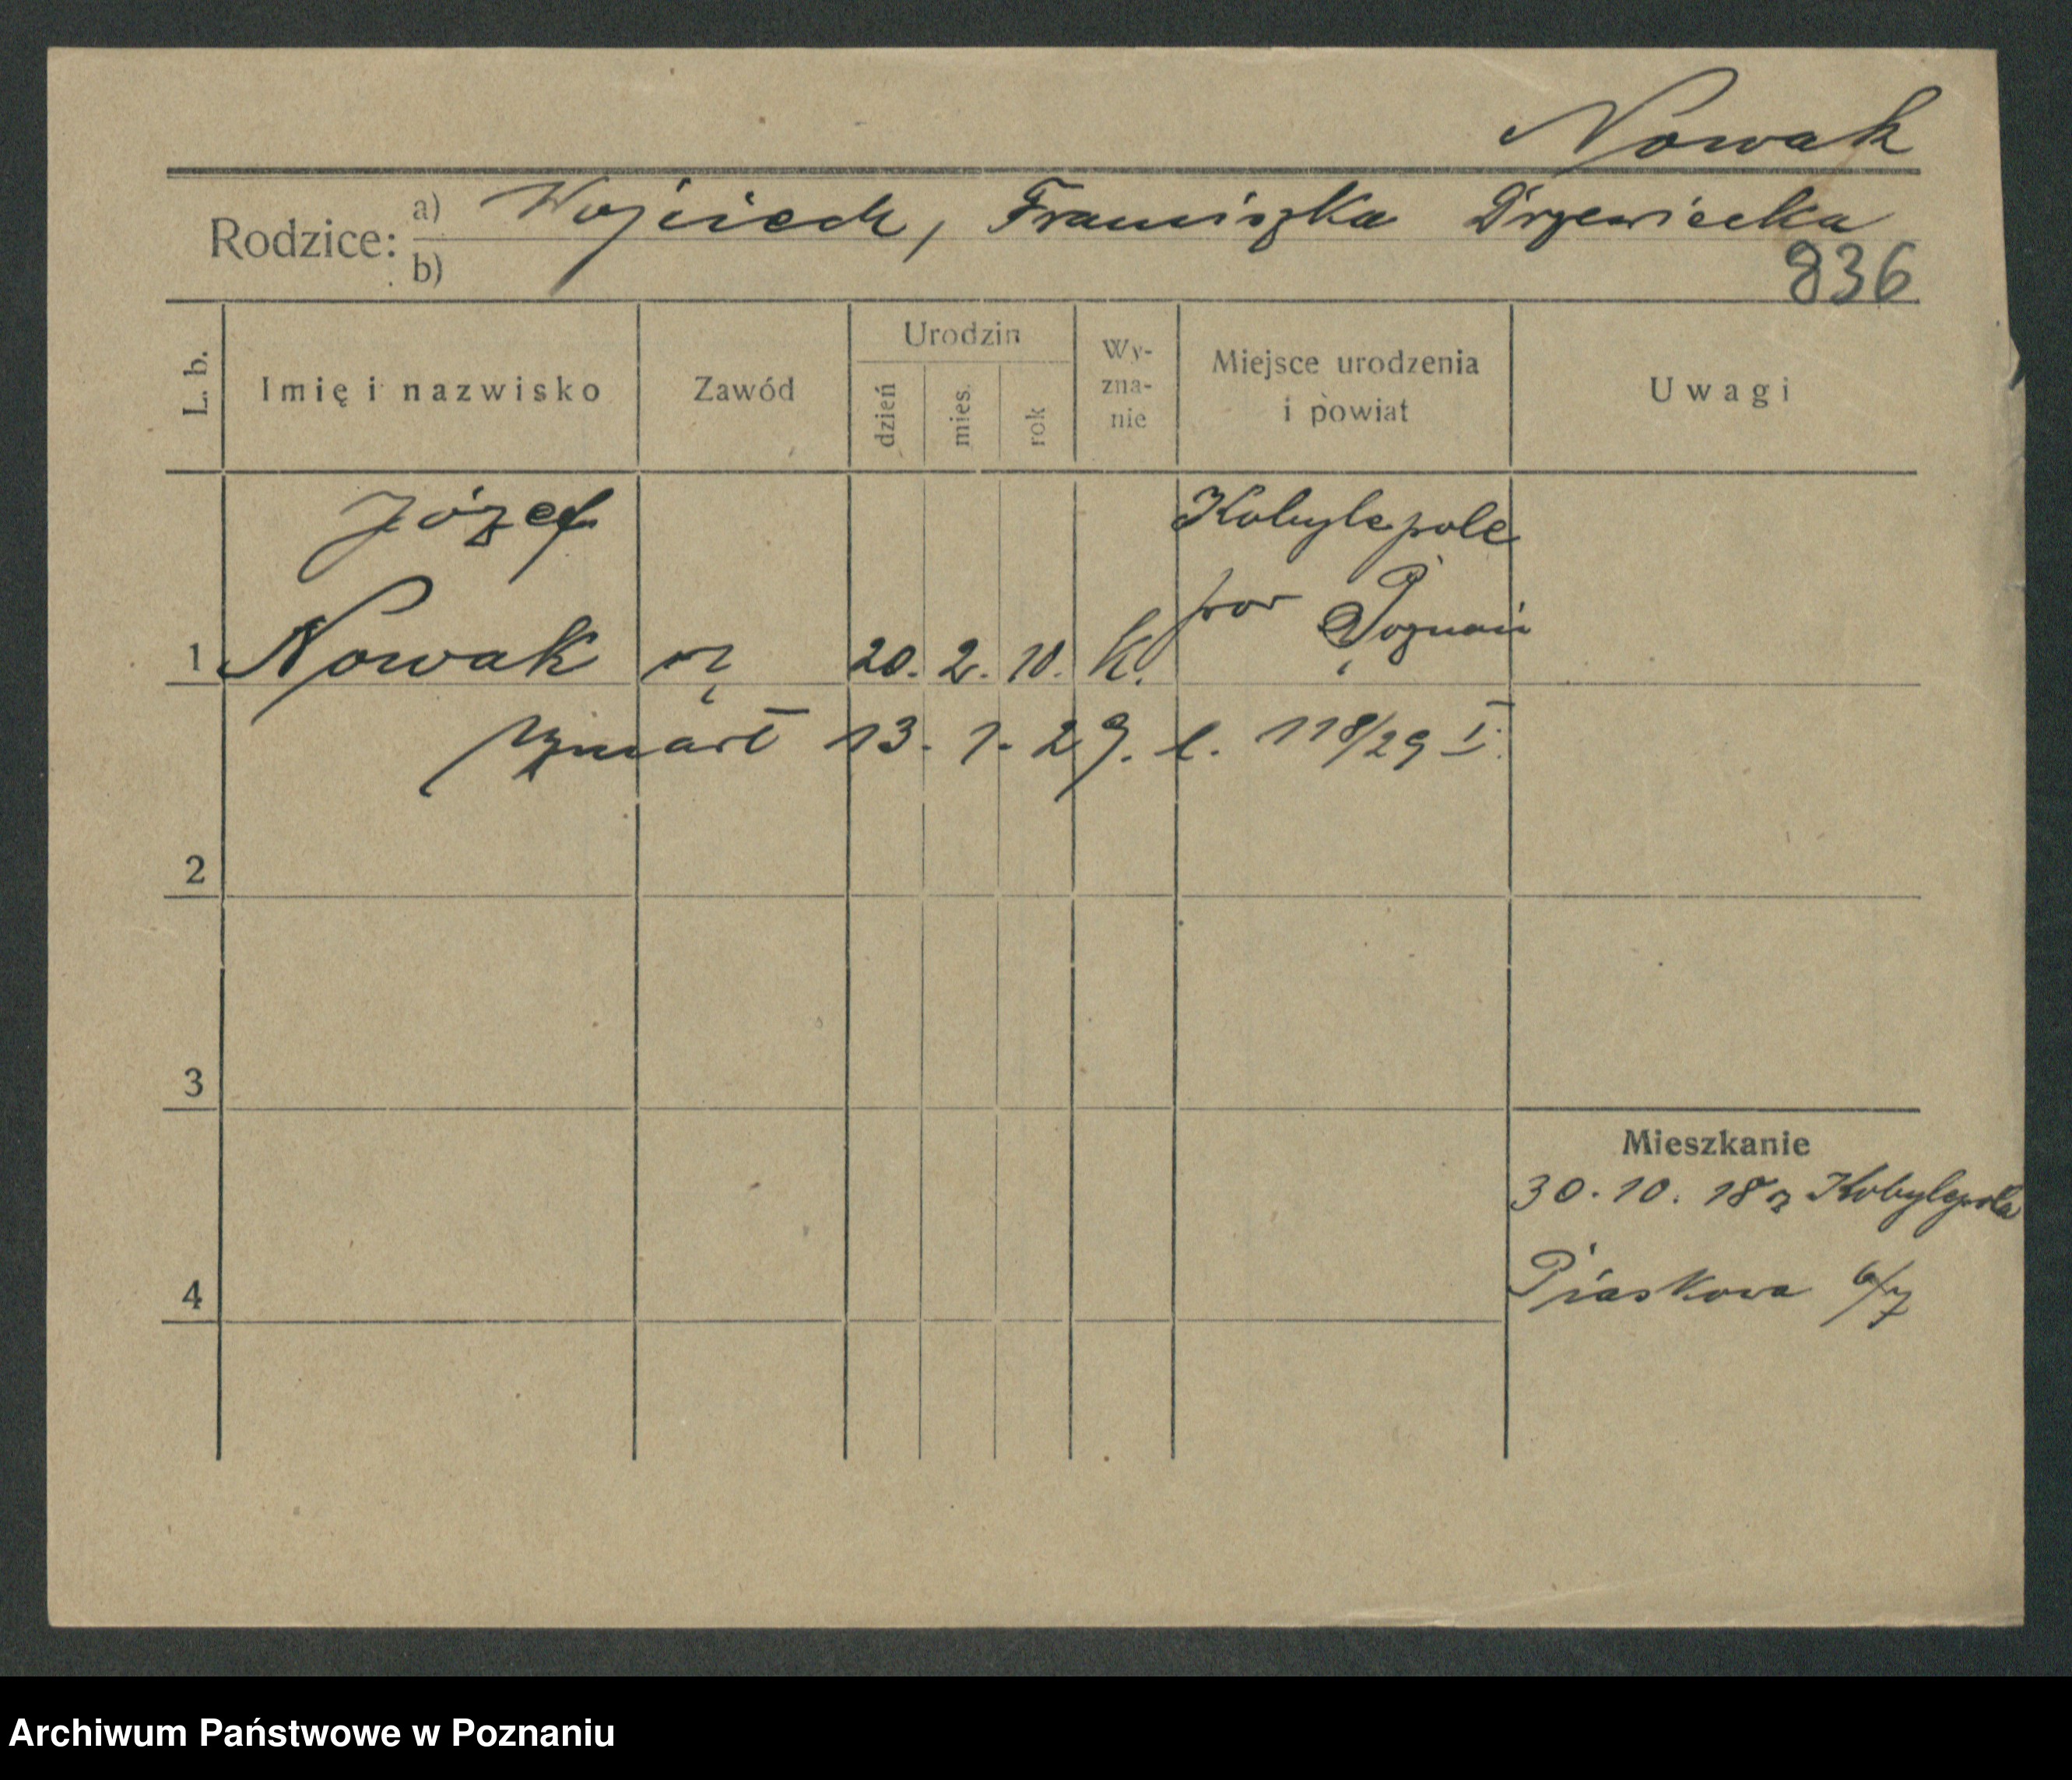 Nowak
Rodzice: a) Wojciech, Franciszka Drzewiecka
b)
836
L. b. Imię i nazwisko Zawód Urodzin dzień mies. rok Wy-zna-nie Miejsce urodzenia i powiat Uwagi
Józef Kobylepole
pow Poznań
1 Nowak 20. 2. 10. K.
zmarł 13. 1. 29. l. 118/29 I.
2
3
Mieszkanie
30. 10. 18 z Kobylepola
4 Piaskowa 6/7
Archiwum Państwowe w Poznaniu